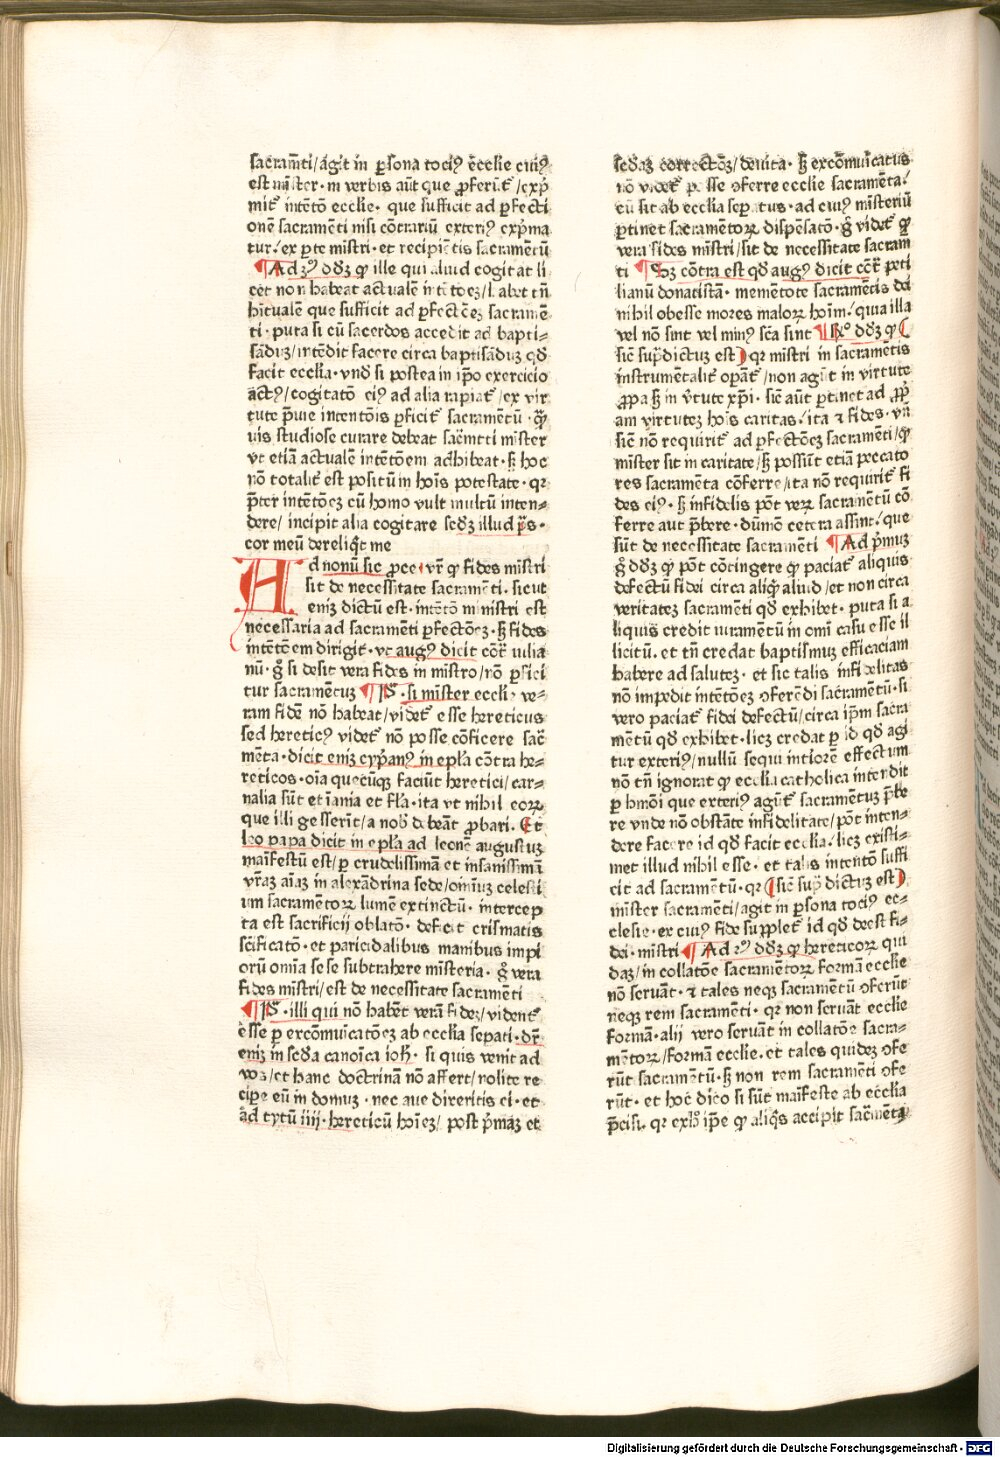 sacram̄ti/agit in ꝑsona tociꝰ ec̄clie cuiꝰ
est mister· in verbis aūt que ꝓferūt᷑/exp̄
mit᷑ intētō ecclie· que sufficit ad ꝑfecti
onē sacramēti nisi cōtrariū exteriꝰ exp̄ma
tur/ ex ꝑte mistri· et recipiētis sacramētū
¶ Ad ꝫꝰ ꝺꝺꝫ ꝙ ille qui aliud cogitat li
cet non habeat actualē intētōeꝫ/habet tn̄
hītualē que sufficit ad ꝑfectōeꝫ sacramē
ti· puta si cū sacerdos accedit ad bapti-
sāduꝫ/intēdit facere circa baptisāduꝫ qꝺ
facit ecclia· vnꝺ si postea in ip̄o exercicio
actꝰ/cogitatō eiꝰ ad alia rapiat᷑/ex vir
tute p̄uie intentōis ꝑficit᷑ sacramētū· qͣꝫ
uis studiose curare debeat sac̄mēti mister
vt etiā actualē intētōem adhibeat· sꝫ hoc
nō totalit᷑ est positū in hoīs potestate· qꝛ
p̄ter intētōeꝫ cū homo vult multū inten-
dere/ incipit alia cogitare scꝺꝫ illud p̄s·
cor meū dereliq̄t me
Ad nonū sic proceditur᷑ ꝙ fides mistri
sit de necessitate sacramēti· sicut
eniꝫ dictū est· intētō ministri est
necessaria ad sacramēti ꝑfectōeꝫ· sꝫ fides
intētōem dirigit· vt augꝰ dicit cōꝛ iulia
nū· gͦ si desit vera fides in mistro/nō ꝑfici
tur sacramētuꝫ ¶ Pͣ· si mister ecclie ve-
ram fidē nō habeat/videt᷑ esse hereticus
sed hereticꝰ videt᷑ nō posse cōficere sac̄
mēta· dicit eniꝫ cyp̄anꝰ in epl̄a cōtra he-
reticos· oīa quecūqꝫ faciūt heretici/car-
nalia sūt et īania et fl̄a· ita vt nihil eoꝝ
que illi gesserīt/a nob̄ debeāt ꝓbari· Et
leo papa dicit in epl̄a ad leonē augustuꝫ
maīfestū est/ꝑ crudelissimā et insanissimā
vr̄aꝫ aīaꝫ in alexādrina sede/omīuꝫ celesti
um sacramētoꝝ lumē extinctū· intercep
ta est sacrificij oblatō· defecit crismatis
sc̄ificatō· et paricidalibus manibus impi
orū omīa sese subtrahere misteria· gͦ vera
fides mistri/est de necessitate sacramēti
¶ Pͣ· illi qui nō habēt verā fideꝫ/vident᷑
esse ꝑ excōmuīcatōeꝫ ab ecclia sepati· dꝛ̄
eniꝫ in scꝺa canoīca ioħ· si quis venit ad
vos/et hanc doctrinā nō affert/nolite re
cipe eū in domuꝫ· nec aue dixeritis ei· et
ad tytū iiij· hereticū hoīeꝫ/ post p̄maꝫ et
scꝺaꝫ correctōeꝫ/ deuita· sꝫ excōmuīcatus
nō videt᷑ posse ꝯferre ecclie sacramēta/
cū sit ab ecclia seꝑatus· ad cuiꝰ misteriū
ꝑtinet sacramētoꝝ dispēsatō· gͦ videt᷑ ꝙ
vera fides mistri/sit de necessitate sacram
ti ¶ Sꝫ cōtra est qꝺ augꝰ dicit cōꝛ peti
lianū donatistā· memētote sacramētis dei
nihil obesse mores maloꝝ hoīm/ quia illa
vel nō sint vel minꝰ sc̄a sint ¶ Rͦ ꝺꝺꝫ ꝙ (
sic̄ sup̄dictus est) qꝛ mistri in sacramētis
instrumētalit᷑ opāt᷑/non agūt in virtute
ꝓpa sꝫ in v̄tute xp̄i· sic̄ aūt ꝑtinet ad ꝓp̄
am virtuteꝫ hoīs caritas/ita ⁊ fides· vn̄
sic̄ nō requirit᷑ ad ꝑfectōeꝫ sacramēti/ꝙ
mister sit in caritate/sꝫ possūt etiā peccato
res sacramēta cōferre/ita nō requirit᷑ fi
des eiꝰ· sꝫ infidelis pōt veꝝ sacramētū cō
ferre aut p̄bere· dūmō cetera assint/ que
sūt de necessitate sacramēti ¶ Ad p̄muꝫ
gͦ ꝺꝺꝫ ꝙ pōt cōtingere ꝙ paciat᷑ aliquis
defectū fidei circa aliq̄ aliud/et non circa
veritateꝫ sacramēti qꝺ exhibet· puta si a
liquis credit iuramētū in omī casu esse il
licitū· et tn̄ credat baptismuꝫ efficaciam
habere ad saluteꝫ· et sic talis infidelitas
nō impedit intētōeꝫ ꝯferēdi sacramētū· si
vero paciat᷑ fidei defectū/circa ip̄m sacra
mētū qꝺ exhibet· liceꝫ credat ꝑ id qꝺ agi
tur exteriꝰ/nullū sequi intiorē effectum
nō tn̄ ignorat ꝙ ecclia catholica intendit
ꝑ hm̄ōi que exteriꝰ agūt᷑ sacramētuꝫ p̄be
re vnde nō obstāte infidelitate/pōt inten-
dere facere id qꝺ facit ecclia/ liceꝫ existi-
met illud nihil esse· et talis intentō suffi
cit ad sacramētū· qꝛ (sic̄ sup̄ dictuꝫ est)
mister sacramēti/agit in ꝑsona tociꝰ ec-
clesie· ex cuiꝰ fide supplet᷑ id qꝺ deest fi-
dei· mistri ¶ Ad ꝛꝰ ꝺꝺꝫ ꝙ hereticoꝝ qui
daꝫ/in collatōe sacramētoꝝ formā ecclie
nō seruāt· ⁊ tales neqꝫ sacramētū ꝯferūt
neqꝫ rem sacramēti· qꝛ non seruāt ecclie
formā· alij vero seruāt in collatōe sacra-
mētoꝝ/formā ecclie· et tales quideꝫ ꝯfe
rūt sacramētū· sꝫ non rem sacramēti ꝯfe
rūt· et hoc dico si sūt maīfeste ab ecclia
p̄cisi· qꝛ exħ ip̄e ꝙ aliq̄s accipit sac̄mēta
Digitalisierung gefördert durch die Deutsche Forschungsgemeinschaft - DFG